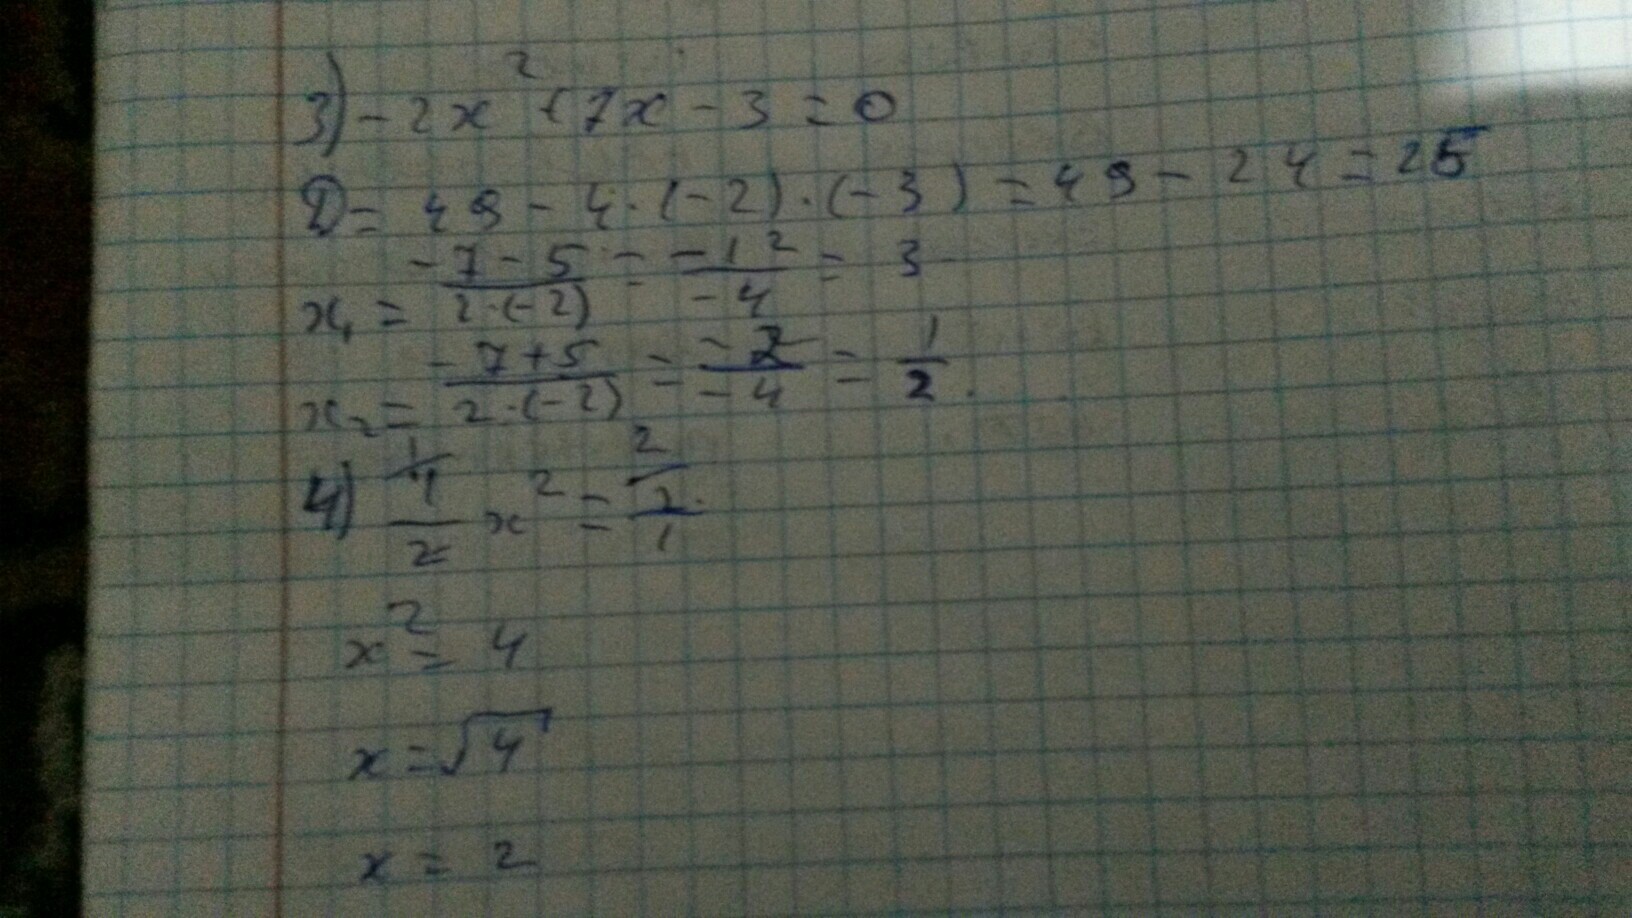 3) -2x² + 7x - 3 = 0
D = 49 - 4·(-2)·(-3) = 49 - 24 = 25
x₁ = (-7-5)/(2·(-2)) = (-12)/(-4) = 3
x₂ = (-7+5)/(2·(-2)) = (-2)/(-4) = 1/2.
4) 1/2 x² = 2/1
x² = 4
x = √4
x = 2